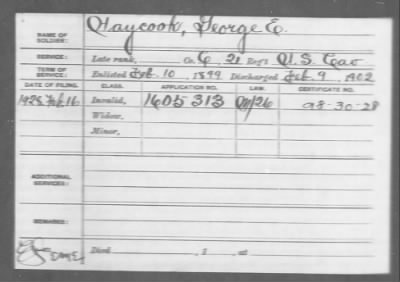 NAME OF SOLDIER: Haycook, George E.
SERVICE: Late rank, Co. C, 2d Reg't U.S. Cav
TERM OF SERVICE: Enlisted Feb. 10, 1899 Discharged Feb. 9, 1902
DATE OF FILING. CLASS. APPLICATION NO. LAW. CERTIFICATE NO.
1925 Feb. 16 Invalid, 1605313
Widow,
Minor,
ADDITIONAL SERVICES:
REMARKS:
Died , 1 , at